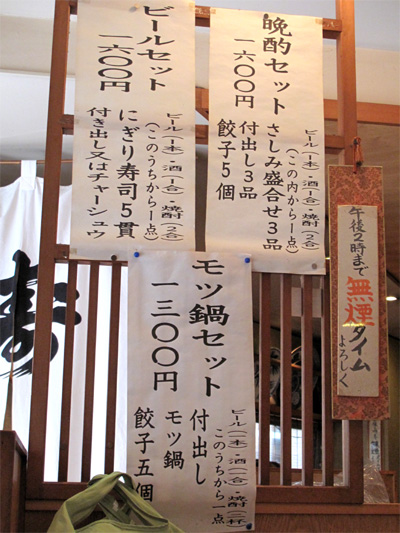 晩酌セット
一六〇〇円
ビール(一本)・酒(一合)・焼酎(二合)
(この内から一点)
さしみ盛合せ3品
付出し3品
餃子5個
ビールセット
一六〇〇円
ビール(一本)・酒(一合)・焼酎(二合)
(このうちから一点)
にぎり寿司5貫
付き出し又はチャーシュウ
モツ鍋セット
一三〇〇円
ビール(一本)・酒(一合)・焼酎(二杯)
このうちから一点
付出し
モツ鍋
餃子五個
午後2時まで
無煙タイム
よろしく
寿